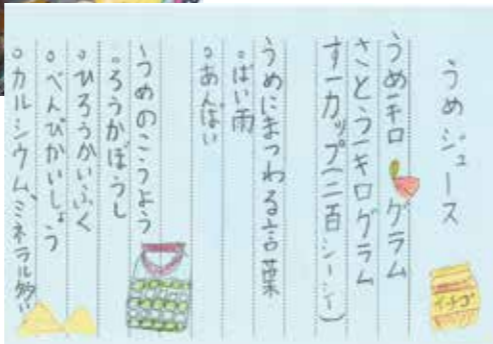 うめジュース
うめ一キログラム
さとう一キログラム
す一カップ(二百シーシー)
うめにまつわる言葉
。ばい雨
。あんばい
うめのこうよう
。ろうかぼうし
。ひろうかいふく
。べんぴかいしょう
。カルシウム、ミネラル多い
イチゴ